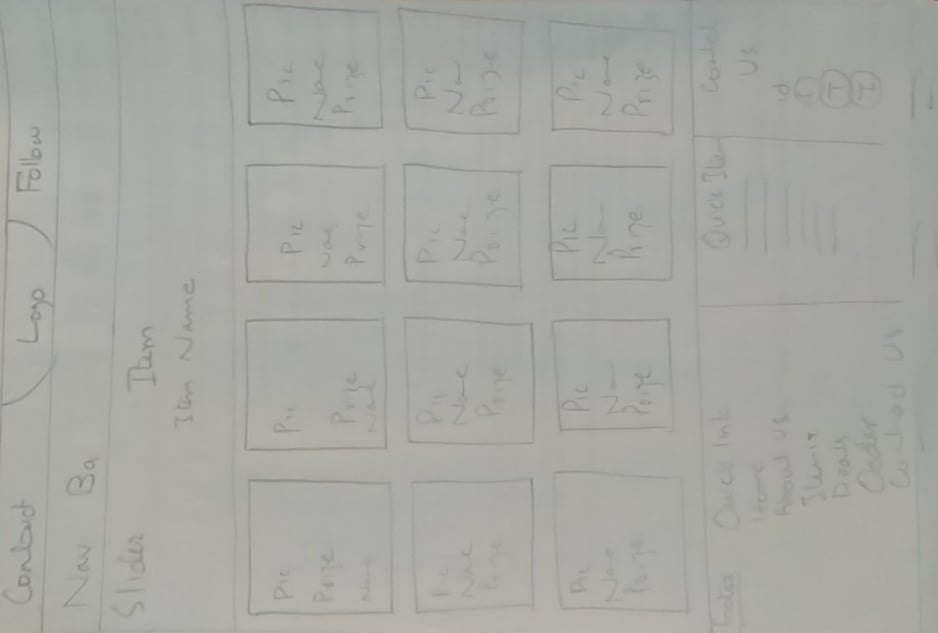 Contact Logo Follow
Nav Ba
Slider
Item
Item Name
Pic
Prize
Name
Pic
Prize
Name
Pic
Nae
Prize
Pic
Name
Prize
Pic
Name
Prize
Pic
Name
Prize
Pic
Na
Prize
Pic
Na
Prize
Pic
Na
Prize
Pic
Na
Prize
Pic
Na
Prize
Pic
Name
Prize
Footer
Quick Link
Home
About Us
Items
Deals
Order
Contact Us
Quick Item
Contact
Us
id